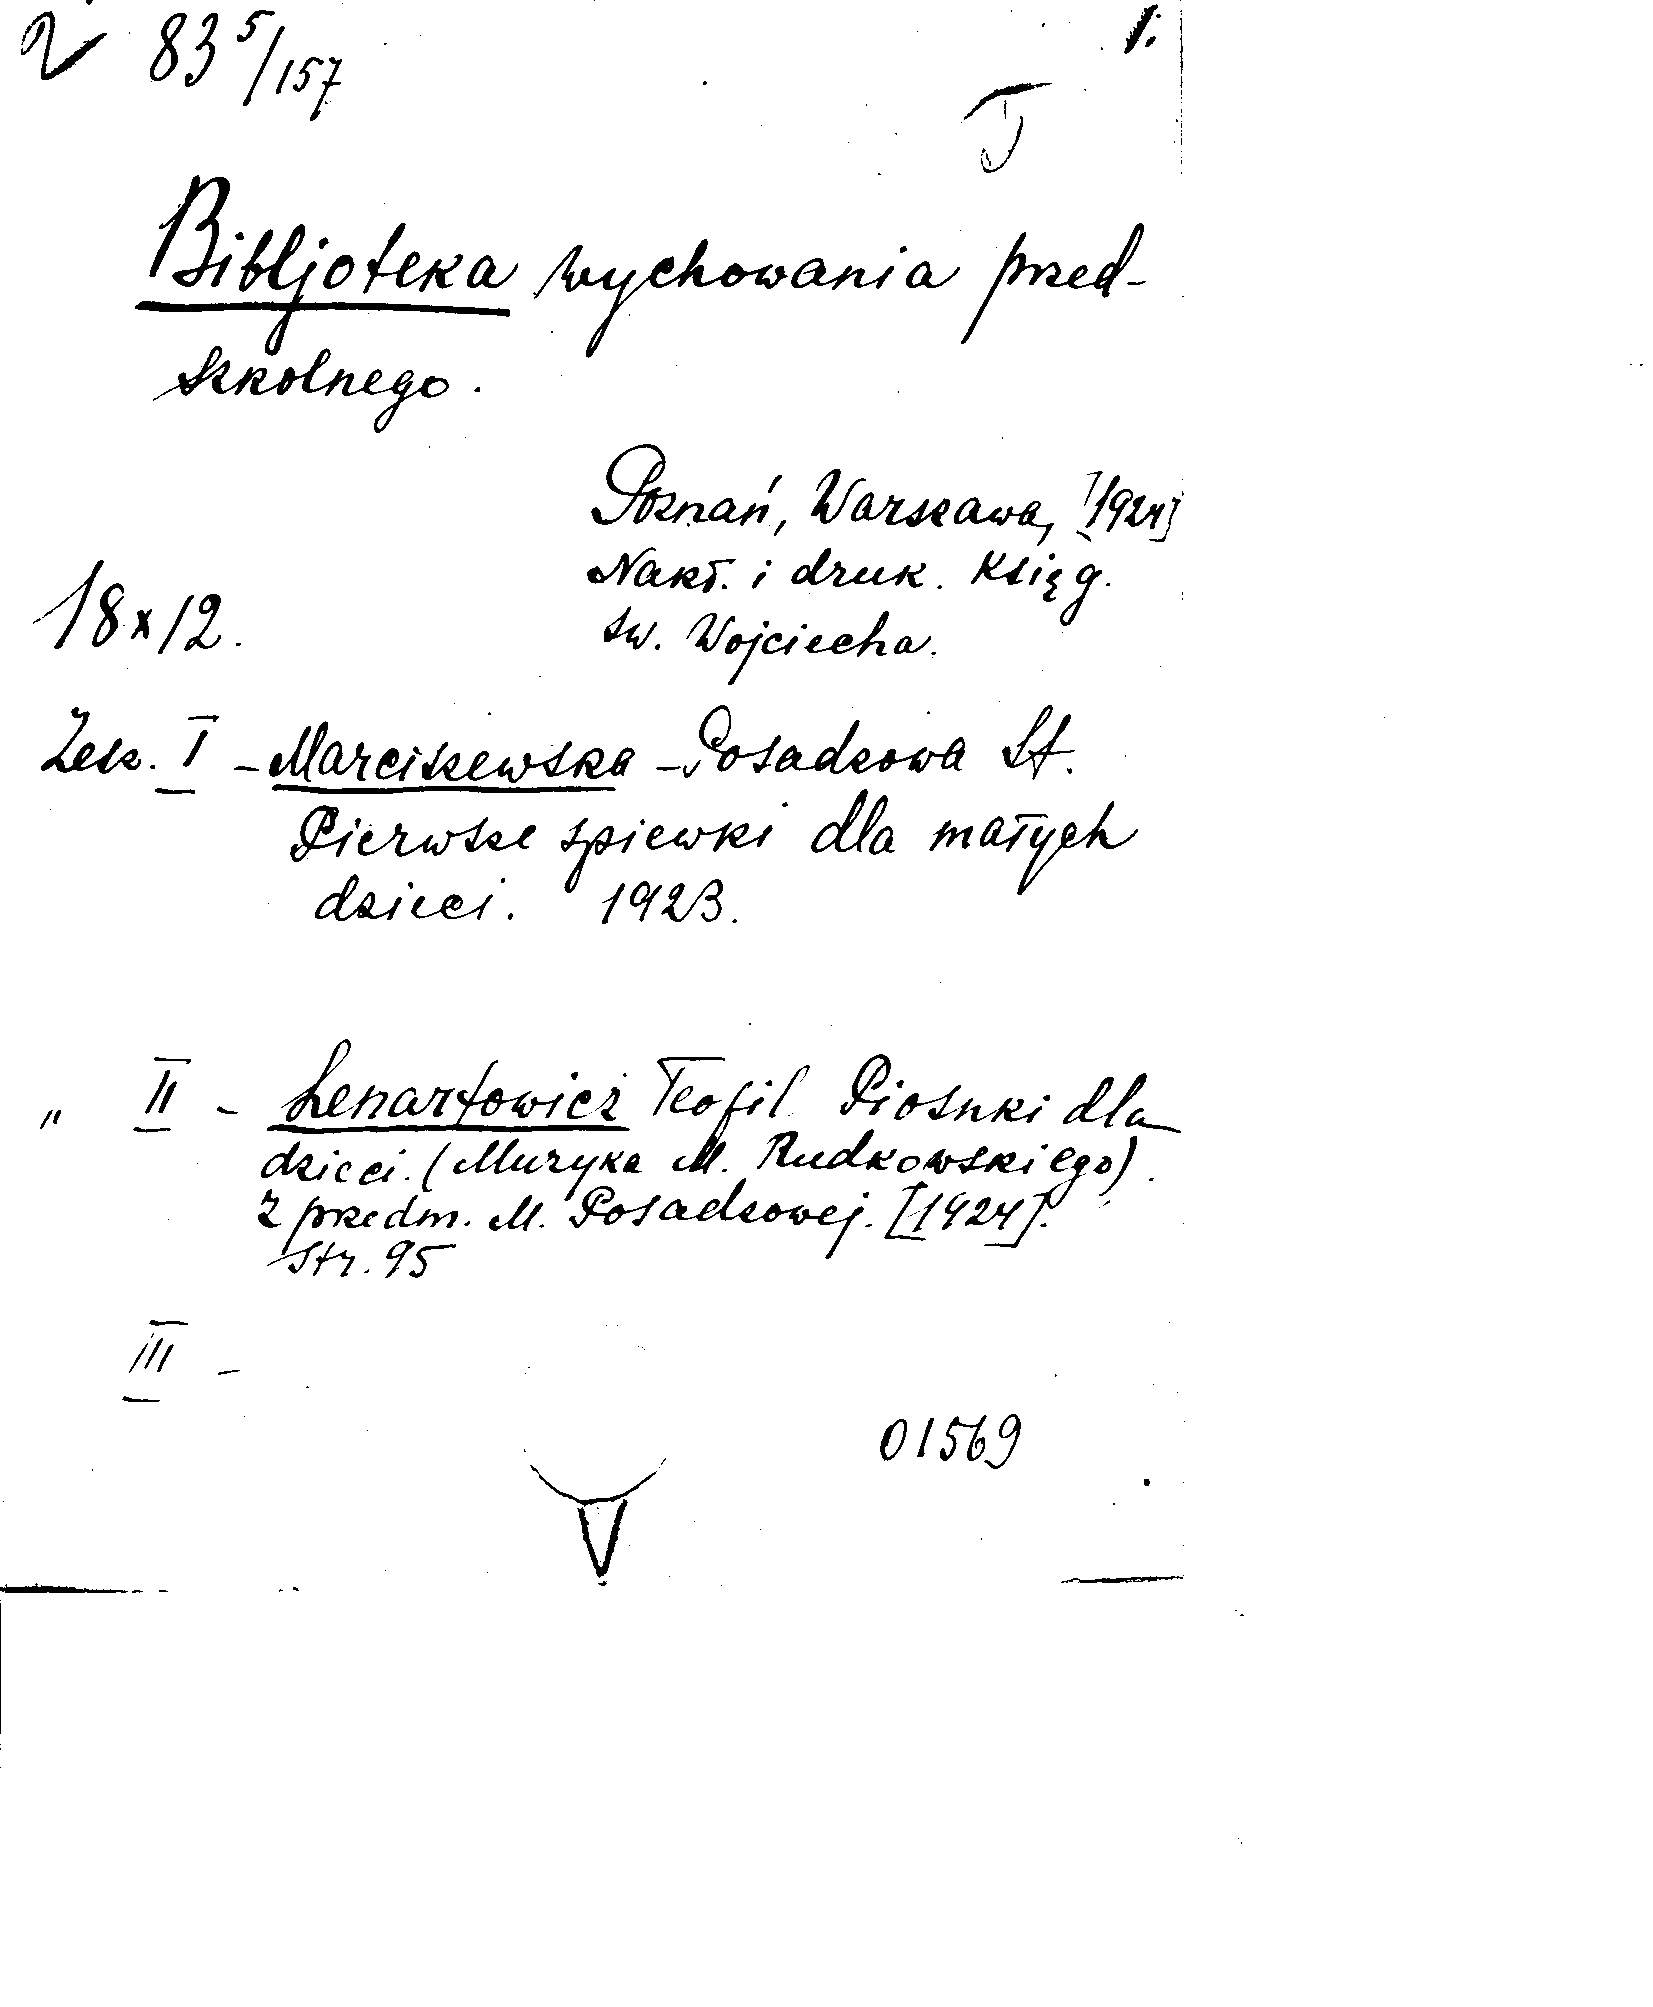 83 5/157
1.
J
Bibljoteka wychowania przed-
szkolnego.
Poznań, Warszawa, [1924]
Nakł. i druk. Księg.
św. Wojciecha.
18x12.
Zesz. I - Marciszewska - Posadzowa St.
Pierwsze śpiewki dla małych
dzieci. 1923.
„ II - Lenartowicz Teofil Piosnki dla
dzieci. (Muzyka M. Rudkowskiego).
Z przedm. M. Posadzowej. [1924].
Str. 95
III -
01569